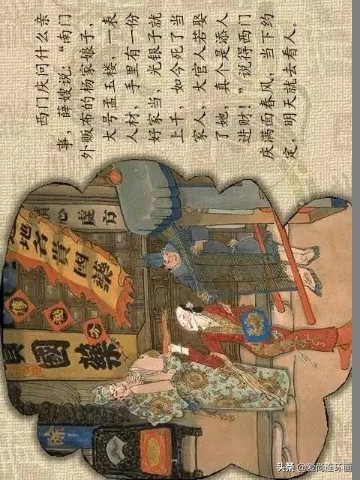 西门庆问什么亲
事，薛嫂说：“南门
外贩布的杨家娘子，
大号孟玉楼，一表
人材，手里有一份
好家当，光银子就
上千，如今死了当
家人，大官人若娶
了她，真个是添人
进财！”说得西门
庆满面春风，当下约
定，明天就去看人。
心處方
地各貴國藥
國藥
头条 @爱尚连环画